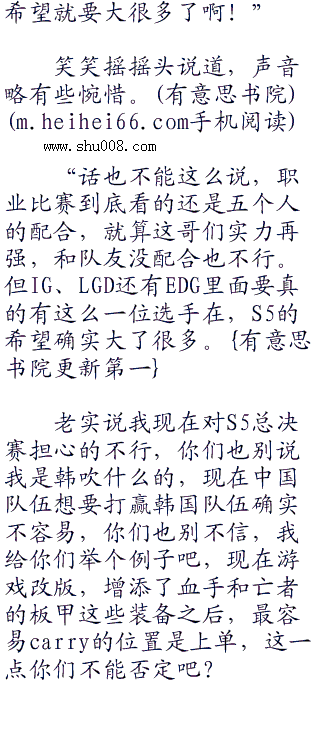 希望就要大很多了啊！”
笑笑摇摇头说道，声音
略有些惋惜。(有意思书院)
(m.heihei66.com手机阅读)
www.shu008.com
“话也不能这么说，职
业比赛到底看的还是五个人
的配合，就算这哥们实力再
强，和队友没配合也不行。
但IG、LGD还有EDG里面要真
的有这么一位选手在，S5的
希望确实大了很多。{有意思
书院更新第一}
老实说我现在对S5总决
赛担心的不行，你们也别说
我是韩吹什么的，现在中国
队伍想要打赢韩国队伍确实
不容易，你们也别不信，我
给你们举个例子吧，现在游
戏改版，增添了血手和亡者
的板甲这些装备之后，最容
易carry的位置是上单，这一
点你们不能否定吧？